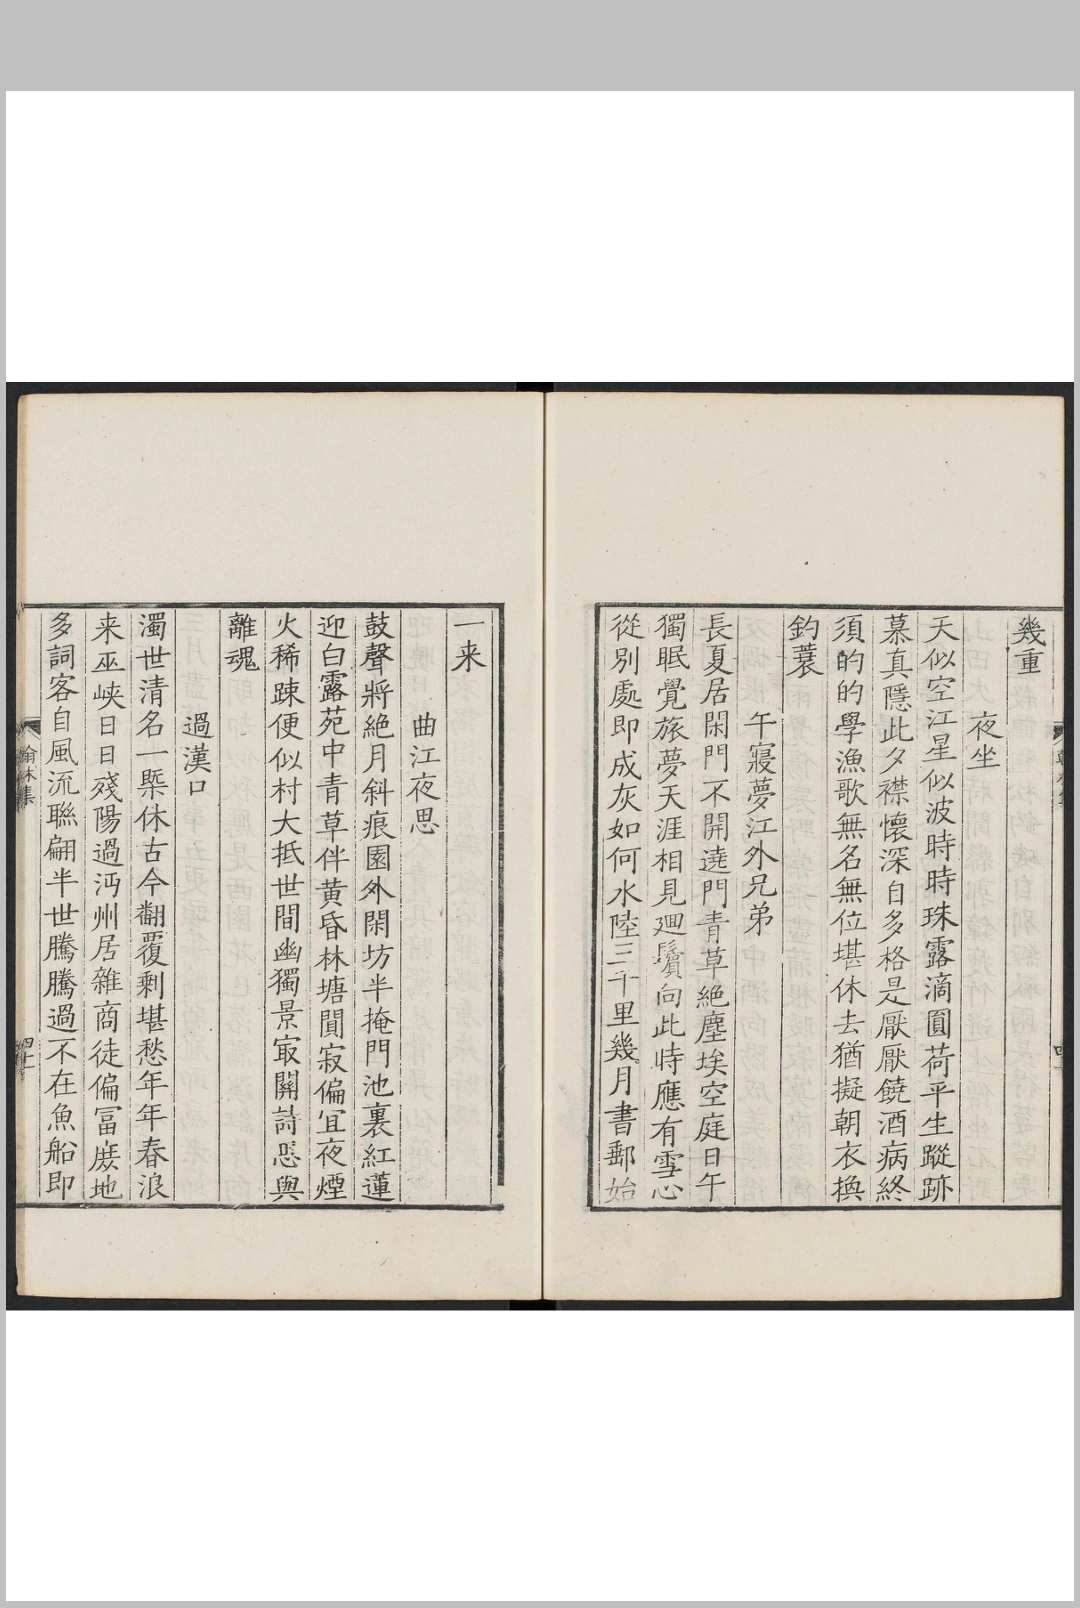 幾重
夜坐
天似空江星似波時時珠露滴圓荷平生蹤跡
慕真隱此夕襟懷深自多格是厭厭饒酒病終
須的的學漁歌無名無位堪休去猶擬朝衣換
釣蓑
午寢夢江外兄弟
長夏居閑門不開遶門青草絕塵埃空庭日午
獨眠覺旅夢天涯相見廻鬢向此時應有雪心
從別處即成灰如何水陸三千里幾月書郵始
一来
曲江夜思
鼓聲將絕月斜痕園外閑坊半掩門池裏紅蓮
迎白露苑中青草伴黃昏林塘闃寂偏宜夜煙
火稀踈便似村大抵世間幽獨景㝡關詩思與
離魂
過漢口
濁世清名一槩休古今翻覆剩堪愁年年春浪
来巫峽日日殘陽過沔州居雜商徒偏冨庻地
多詞客自風流聯翩半世騰騰過不在魚船即
翰林集
四十一